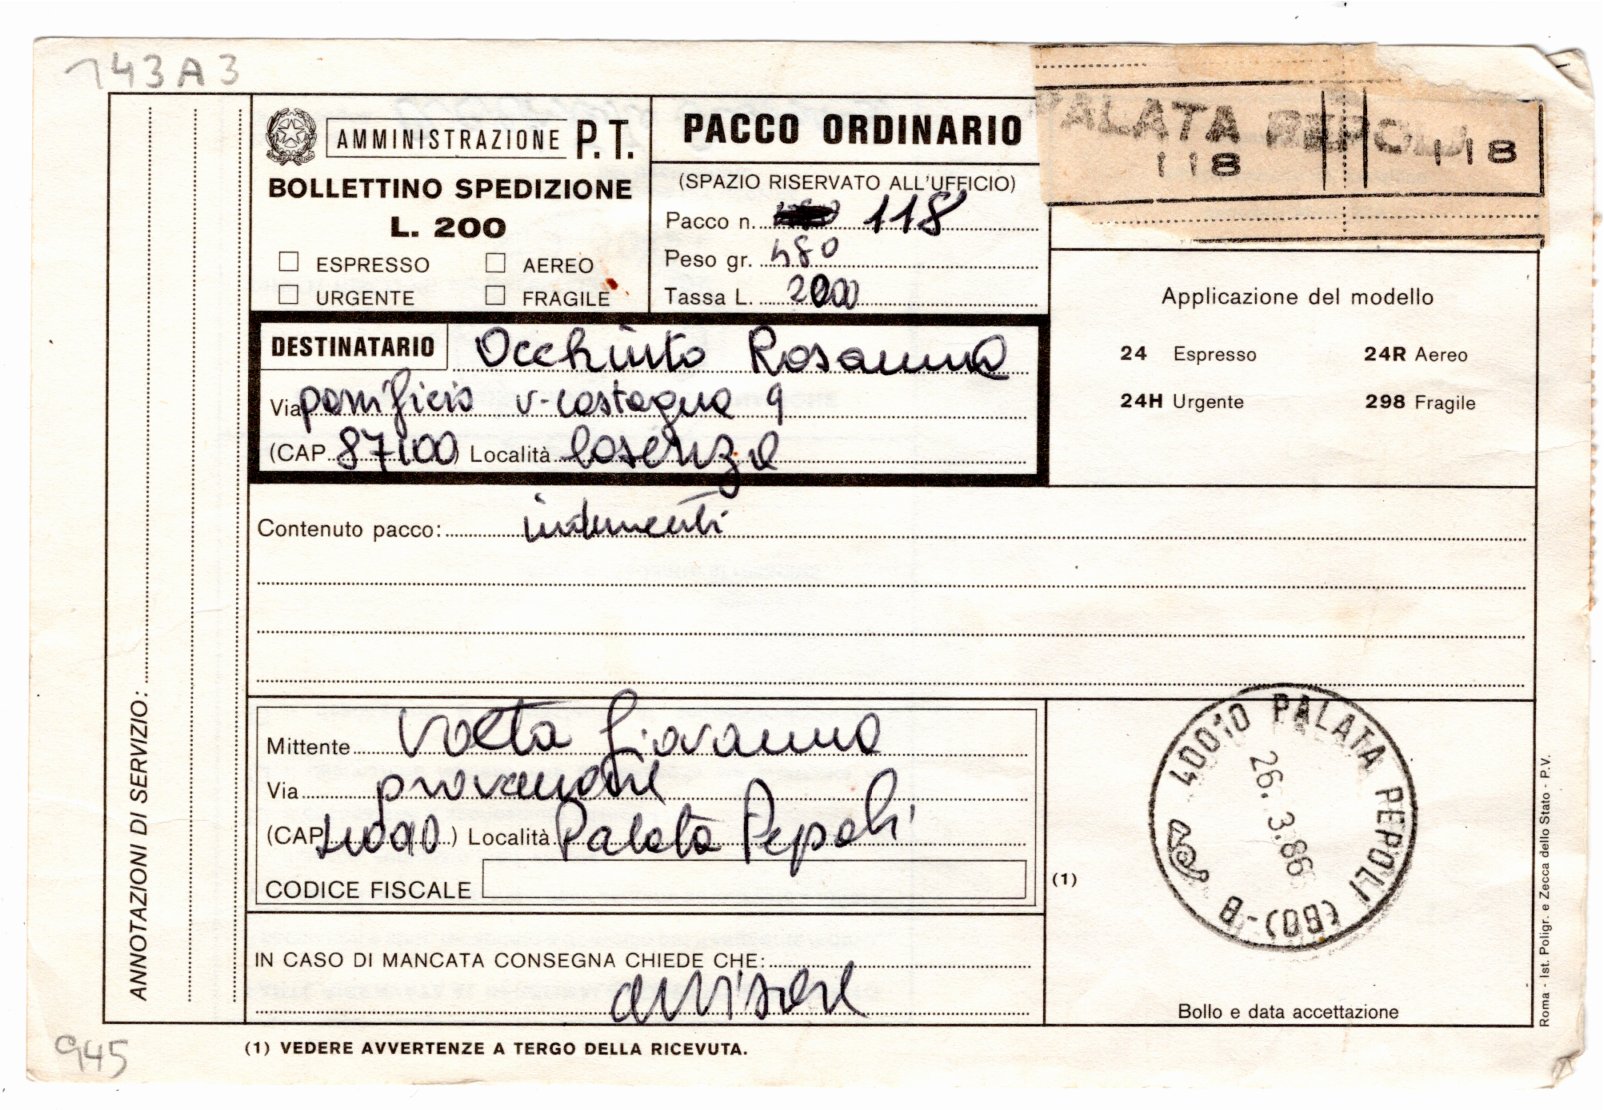 143A3
AMMINISTRAZIONE P.T.
BOLLETTINO SPEDIZIONE
L. 200
ESPRESSO AEREO
URGENTE FRAGILE
PACCO ORDINARIO
(SPAZIO RISERVATO ALL'UFFICIO)
Pacco n. 118
Peso gr. 480
Tassa L. 2000
PALATA PEPOLI
118 118
Applicazione del modello
24 Espresso 24R Aereo
24H Urgente 298 Fragile
DESTINATARIO Occhiuto Rosanna
Via panificio v-castagna 9
(CAP 87100) Località Cosenza
Contenuto pacco: indumenti
ANNOTAZIONI DI SERVIZIO:
Mittente Volta Giovanna
Via provanone
(CAP 40010) Località Palata Pepoli
CODICE FISCALE
(1)
40010 PALATA PEPOLI (BO) - B
26.3.86
IN CASO DI MANCATA CONSEGNA CHIEDE CHE:
avvisare
Bollo e data accettazione
Roma - Ist. Poligr. e Zecca dello Stato - P.V.
(1) VEDERE AVVERTENZE A TERGO DELLA RICEVUTA.
945